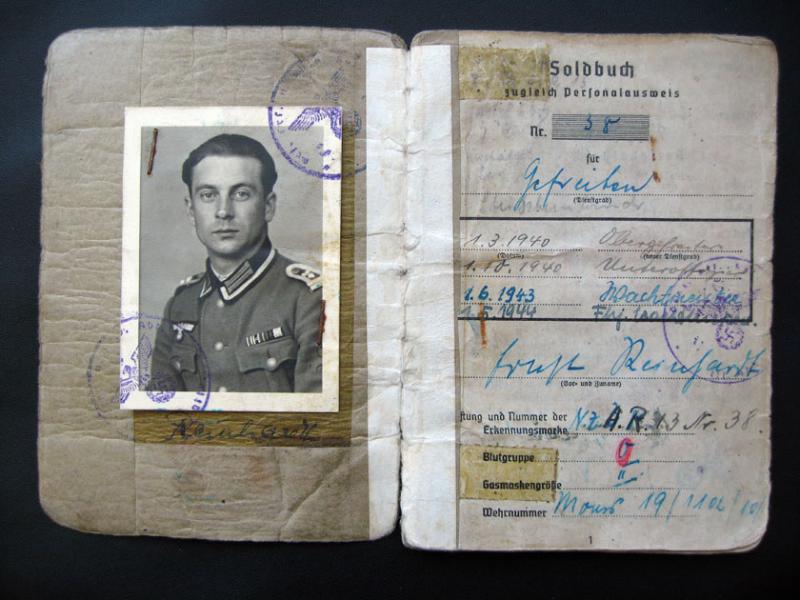 Reinhardt
Soldbuch
zugleich Personalausweis
Nr. 38
für
Gefreiten
(Dienstgrad)
1.3.1940 Obergefreiter
(Datum) (neuer Dienstgrad)
1.10.1940 Unteroffizier
1.6.1943 Wachtmeister
1.5.1944
Ernst Reinhardt
(Vor- und Zuname)
ftung und Nummer der
Erkennungsmarke A.R. 13 Nr. 38.
Blutgruppe 0
Gasmaskengröße
Wehrnummer 19/
1